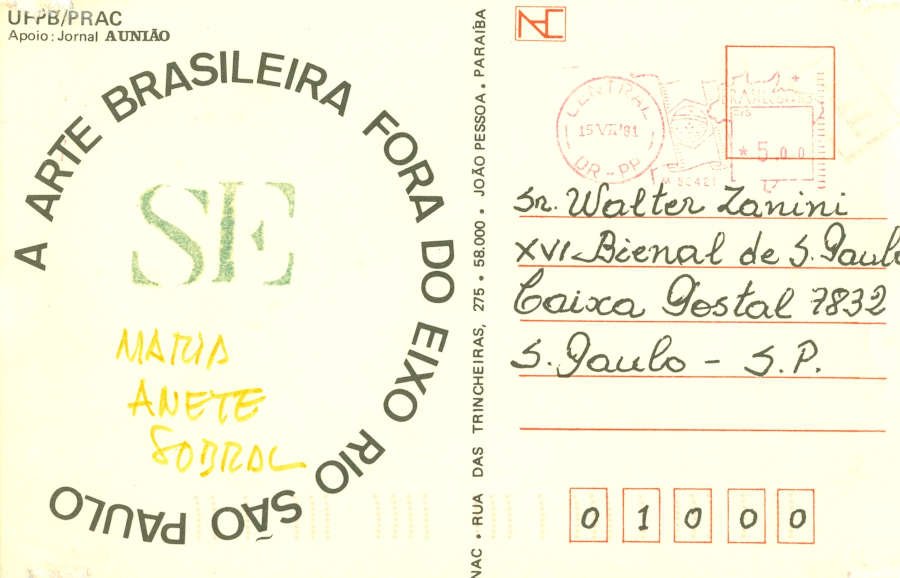 UFPB/PRAC
Apoio : Jornal A UNIÃO
A ARTE BRASILEIRA FORA DO EIXO RIO SÃO PAULO
SE
MARIA
ANETE
SOBRAL
NAC • RUA DAS TRINCHEIRAS, 275 • 58.000 • JOÃO PESSOA • PARAÍBA
NAC
CENTRAL
15 VII 81
DR-PB
* 5.00
Sr. Walter Zanini
XVI-Bienal de S. Paulo
Caixa Postal 7832
S. Paulo - S.P.
0 1 0 0 0